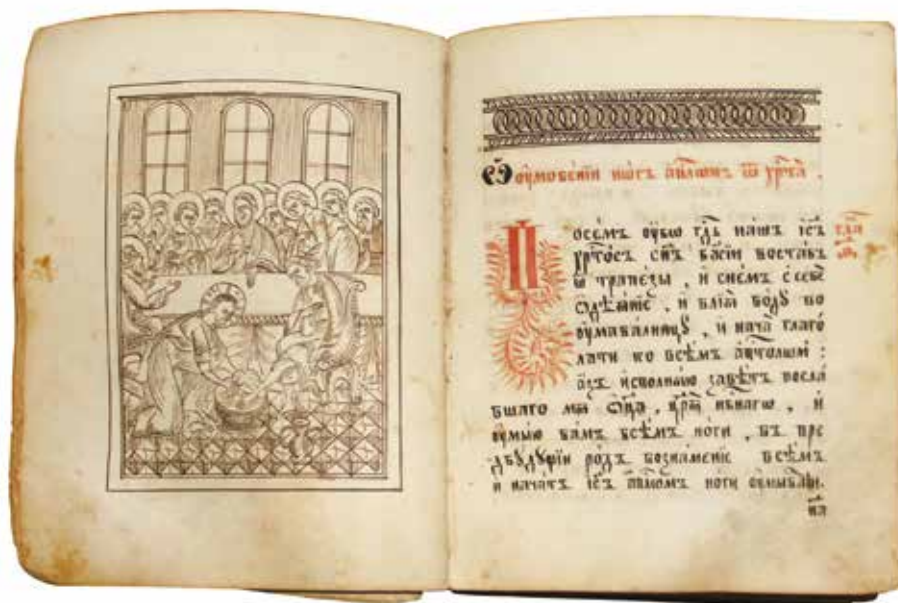 Ѡ оумовенїи ногъ апⷭ҇лѡмъ ѿ хрⷭ҇та̀ .
Посемъ оубѡ гдⷭ҇ь нашъ і҆с҃ъ
хрⷭ҇тосъ сн҃ъ бж҃їи воставъ
ѿ трапезы , и снемъ с себѐ
ѻдѣѧнїе , и влїѧ водꙋ во
оумывалницꙋ , и нача глаго
лати ко всѣмъ апⷭ҇толѡмъ :
азъ исполнѧю завѣтъ посла
вшаго мѧ ѻц҃а , и
оумыю вамъ всѣмъ ноги , въ пре
дбꙋдꙋщїи родъ вознаменїе всѣмъ
и начатъ і҆с҃ъ апⷭ҇лѡмъ ноги оумывати .
на